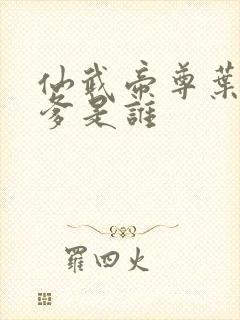 仙武帝尊葉
爹是誰
羅四火